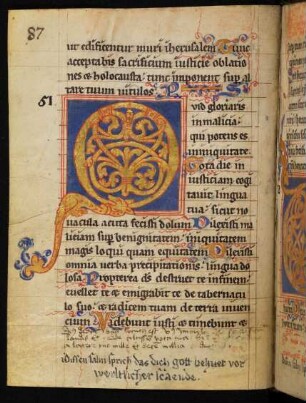 87
ut edificentur muri iherusalem Tunc
acceptabis sacrificium iusticie oblatio
nes & holocausta: tunc imponent sup al
tare tuum uitulos.
51
Q vid gloriaris
in malicia:
qui potens es
iniquitate
Tota die in
iusticiam cogi
tauit lingua
tua: sicut no
uacula acuta fecisti dolum Dilexisti ma
liciam sup benignitatem: iniquitatem
magis loqui quam equitatem Dilexisti
omnia uerba precipitationis: lingua do
losa. Propterea ds destruet te in finem:
euellet te & emigrabit te de tabernacu
lo suo: & radicem tuam de terra uiuen
cium Videbunt iusti & timebunt &
disen salm sprich das dich gott behuet vor
weltlicher schande.